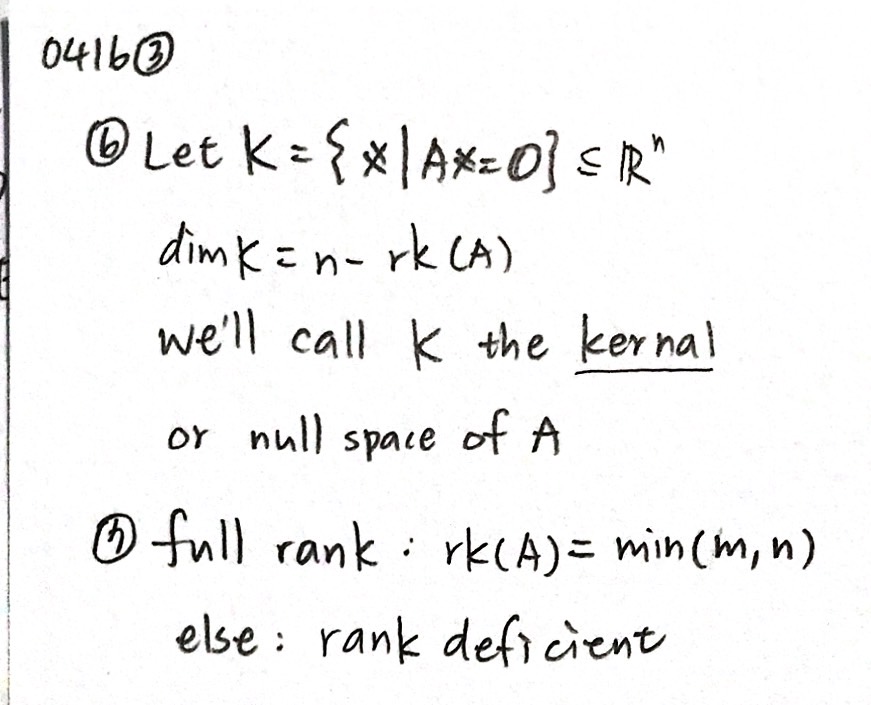 0416③
⑥ Let K = { x | Ax = 0 } ⊆ ℝⁿ
dim K = n - rk (A)
we'll call K the kernal
or null space of A
⑦ full rank : rk(A) = min(m, n)
else : rank deficient